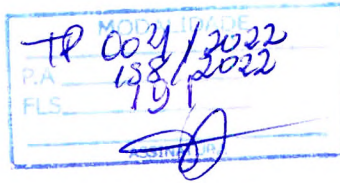 MODALIDADE
TP 004/2022
P.A 158/2022
FLS 191
ASSINATURA